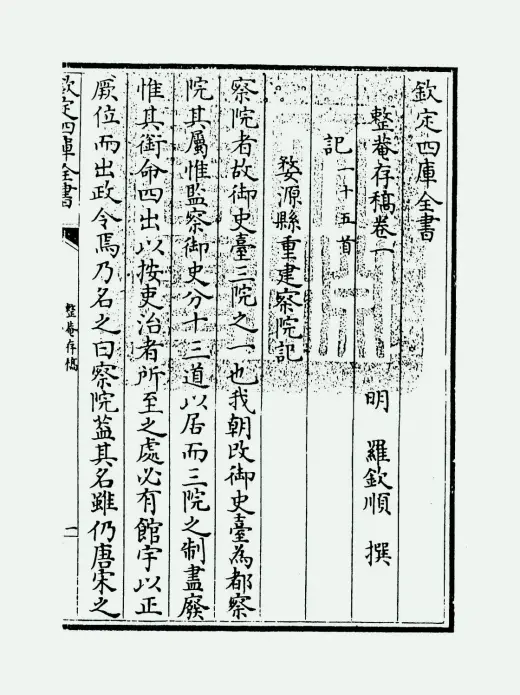 欽定四庫全書
整菴存稿卷一
明 羅欽順 撰
記一十五首
婺源縣重建察院記
察院者故御史臺三院之一也我朝改御史臺為都察
院其屬惟監察御史分十三道以居而三院之制盡廢
惟其銜命四出以按吏治者所至之處必有館宇以正
厥位而出政令焉乃名之曰察院葢其名雖仍唐宋之
欽定四庫全書
整菴存稿
一